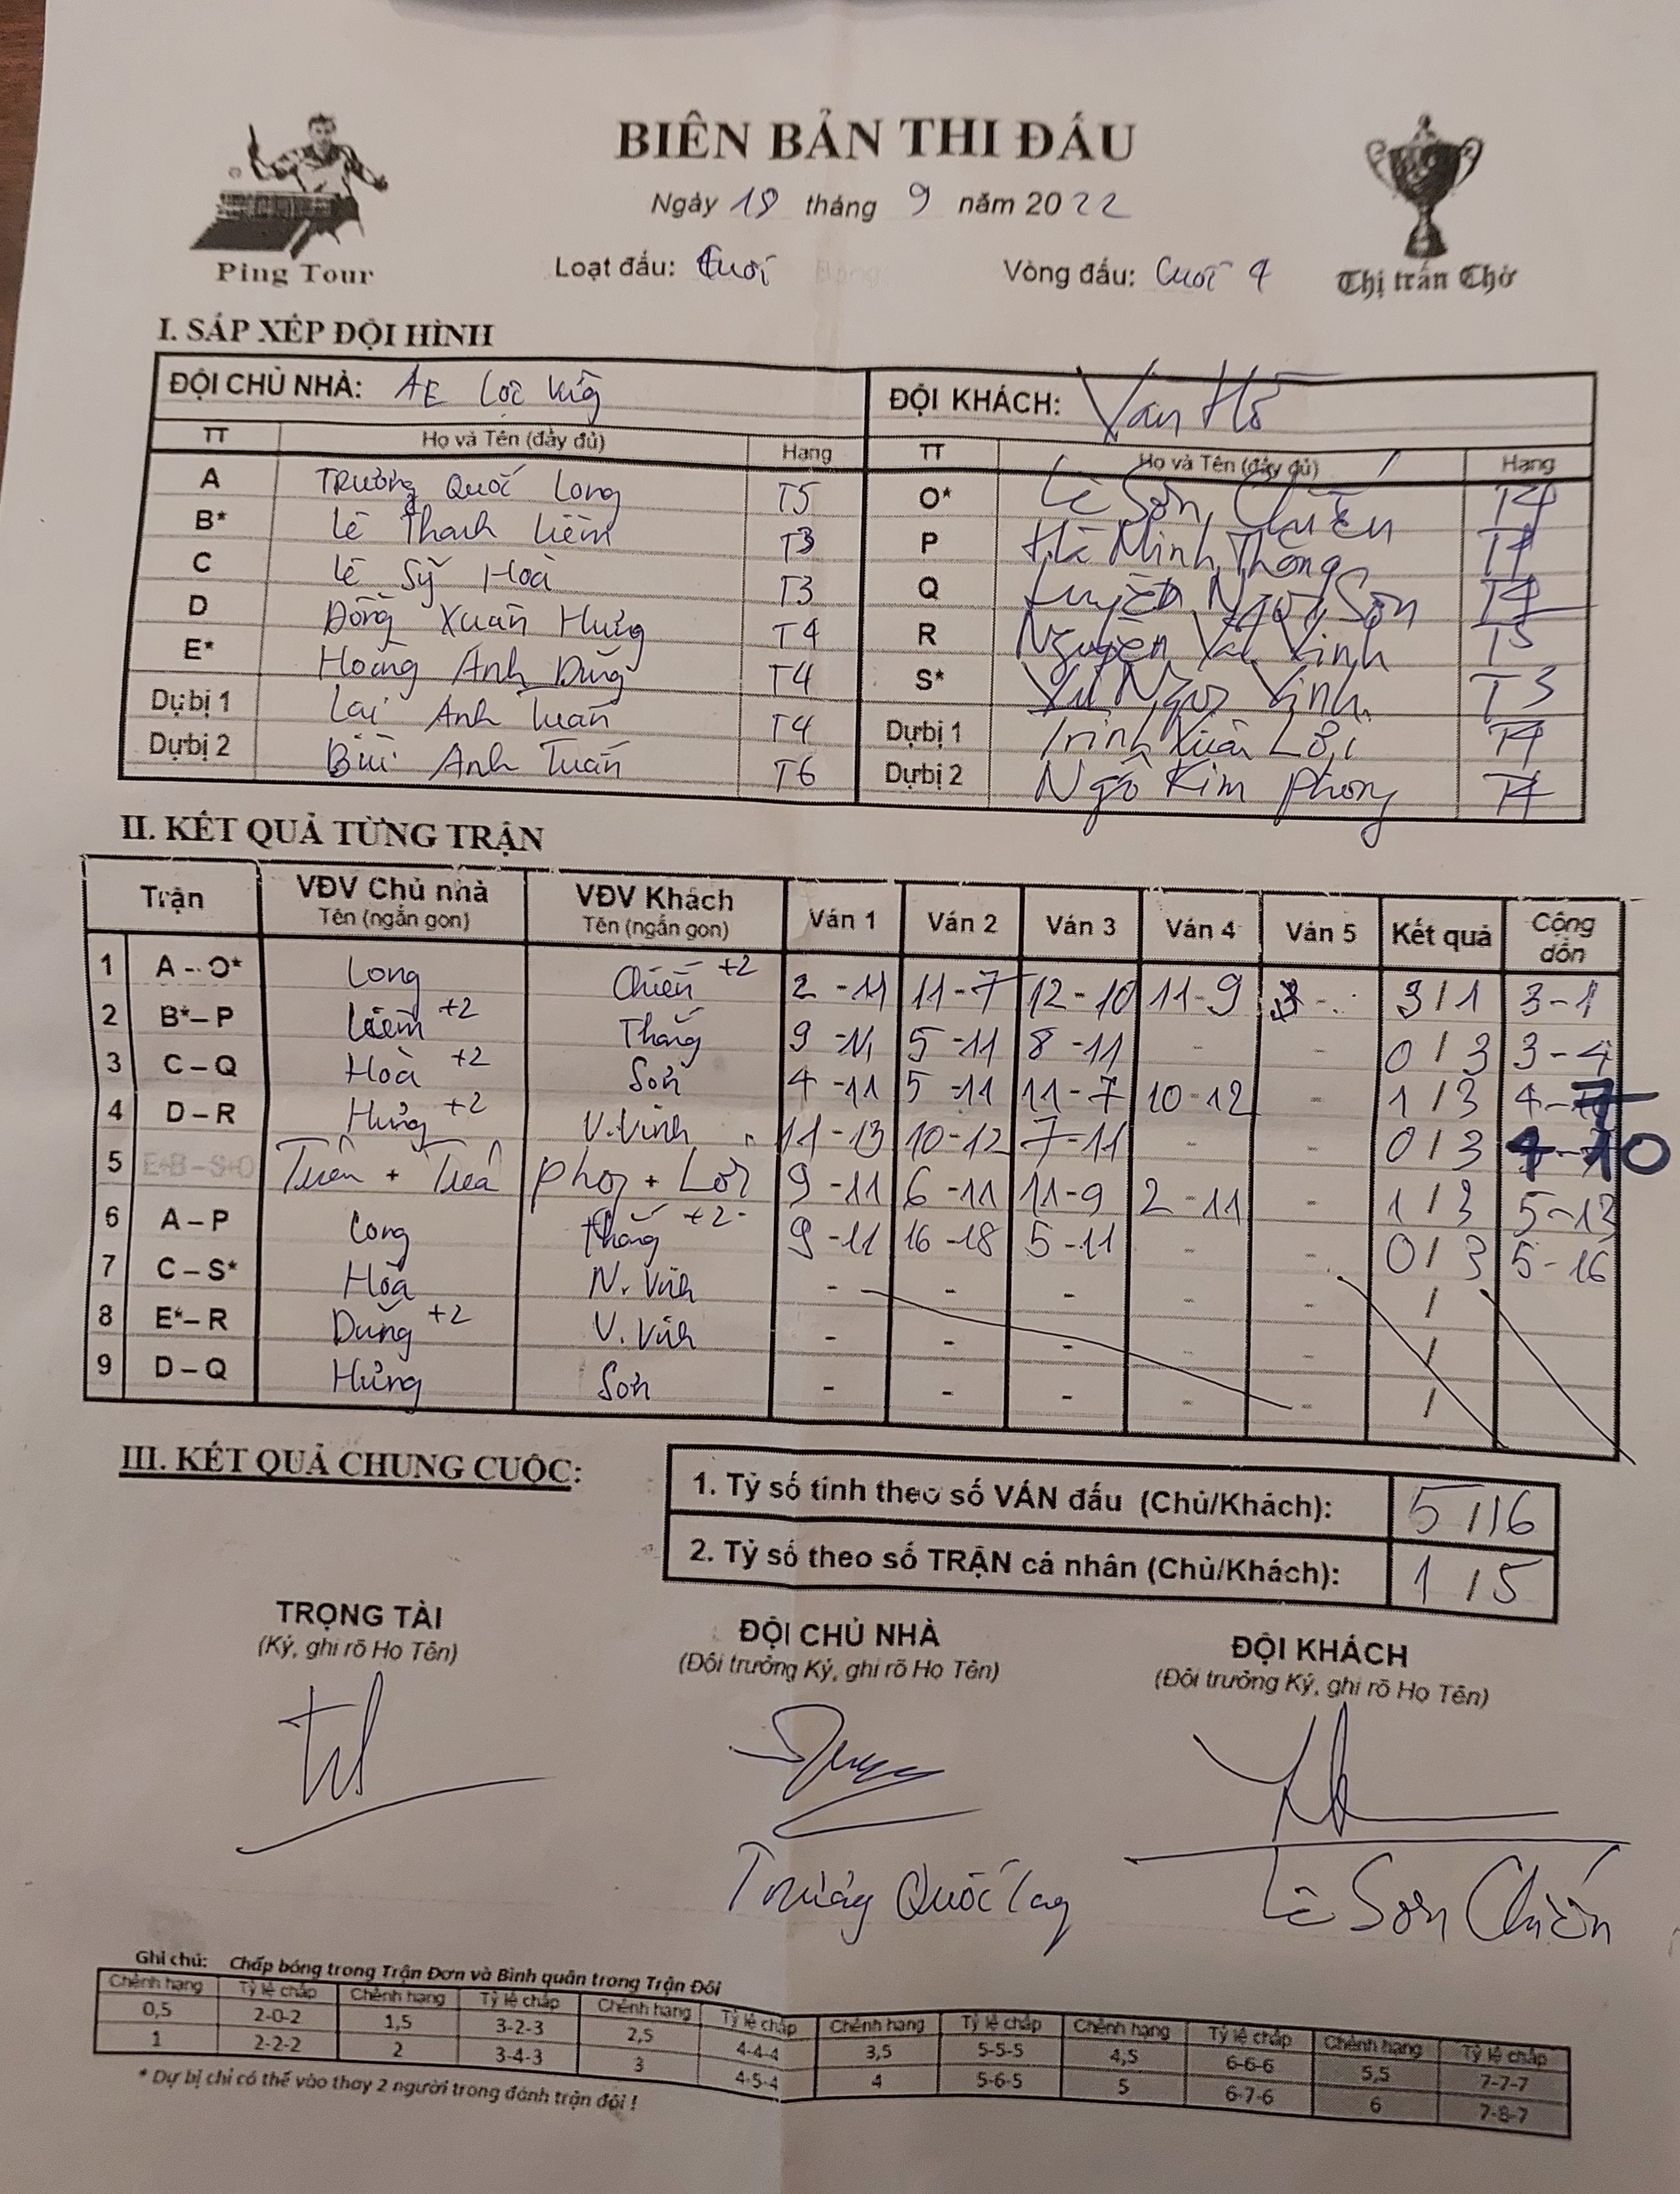 BIÊN BẢN THI ĐẤU
Ngày 18 tháng 9 năm 2022
Ping Tour
Loạt đấu: Cuối
Vòng đấu: Cuối 4
Thị trấn Chờ
I. SẮP XẾP ĐỘI HÌNH
ĐỘI CHỦ NHÀ: AE Lộc Vừng ĐỘI KHÁCH: Vân Hồ
TT Họ và Tên (đầy đủ) Hạng TT Họ và Tên (đầy đủ) Hạng
A Trương Quốc Long T5 O* Lê Sơn Chiến T4
B* Lê Thanh Liêm T3 P Minh Thắng T4
C Lê Sỹ Hoà T3 Q Ngọc Sơn T4
D Đồng Xuân Hưng T4 R Nguyễn Văn Vinh T5
E* Hoàng Anh Dũng T4 S* Vũ Ngọc Vinh T3
Dự bị 1 Lại Anh Tuấn T4 Dự bị 1 Trịnh Xuân Lợi T4
Dự bị 2 Bùi Anh Tuấn T6 Dự bị 2 Ngô Kim Phong T4
II. KẾT QUẢ TỪNG TRẬN
Trận VĐV Chủ nhà Tên (ngắn gọn) VĐV Khách Tên (ngắn gọn) Ván 1 Ván 2 Ván 3 Ván 4 Ván 5 Kết quả Cộng dồn
1 A - O* Long Chiến +2 2-11 11-7 12-10 11-9 - 3/1 3-1
2 B* – P Liêm +2 Thắng 9-11 5-11 8-11 - - 0/3 3-4
3 C – Q Hoà +2 Sơn 4-11 5-11 11-7 10-12 - 1/3 4-7
4 D – R Hưng +2 V.Vinh 11-13 10-12 7-11 - - 0/3 4-10
5 E+B – S+O Tuấn + Tuấn Phong + Lợi 9-11 6-11 11-9 2-11 - 1/3 5-13
6 A – P Long Thắng +2 9-11 16-18 5-11 - - 0/3 5-16
7 C – S* Hoà N. Vinh - - - - - /
8 E* – R Dũng +2 V. Vinh - - - - - /
9 D – Q Hưng Sơn - - - - - /
III. KẾT QUẢ CHUNG CUỘC:
1. Tỷ số tính theo số VÁN đấu (Chủ/Khách): 5/16
2. Tỷ số theo số TRẬN cá nhân (Chủ/Khách): 1/5
TRỌNG TÀI ĐỘI CHỦ NHÀ ĐỘI KHÁCH
(Ký, ghi rõ Họ Tên) (Đội trưởng Ký, ghi rõ Họ Tên) (Đội trưởng Ký, ghi rõ Họ Tên)
Trương Quốc Long Lê Sơn Chiến
Ghi chú: Chấp bóng trong Trận Đơn và Bình quân trong Trận Đôi
Chênh hạng Tỷ lệ chấp Chênh hạng Tỷ lệ chấp Chênh hạng Tỷ lệ chấp Chênh hạng Tỷ lệ chấp Chênh hạng Tỷ lệ chấp Chênh hạng Tỷ lệ chấp
0,5 2-0-2 1,5 3-2-3 2,5 4-4-4 3,5 5-5-5 4,5 6-6-6 5,5 7-7-7
1 2-2-2 2 3-4-3 3 4-5-4 4 5-6-5 5 6-7-6 6 7-8-7
* Dự bị chỉ có thể vào thay 2 người trong đánh trận đôi !